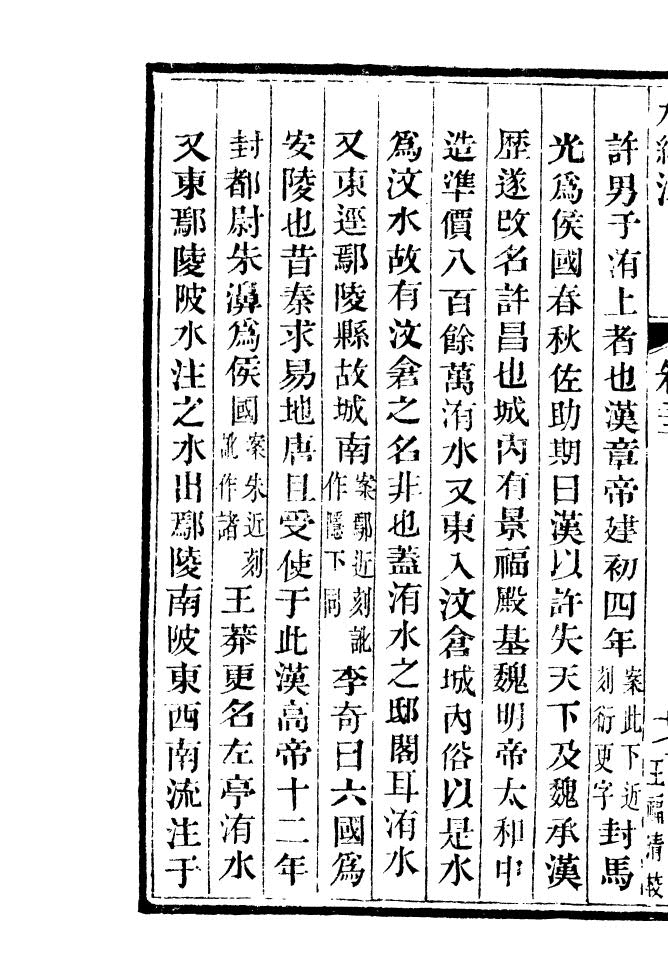 王福清校
許男子洧上者也漢章帝建初四年案此下近刻衍更字封馬
光爲侯國春秋佐助期曰漢以許失天下及魏承漢
歷遂改名許昌也城內有景福殿基魏明帝太和中
造準價八百餘萬洧水又東入汶倉城內俗以是水
爲汶水故有汶倉之名非也蓋洧水之邸閣耳洧水
又東逕鄢陵縣故城南案鄢近刻訛作隱下同李奇曰六國爲
安陵也昔秦求易地唐且受使于此漢高帝十二年
封都尉朱濞爲侯國案朱近刻訛作諸王莽更名左亭洧水
又東鄢陵陂水注之水出鄢陵南陂東西南流注于